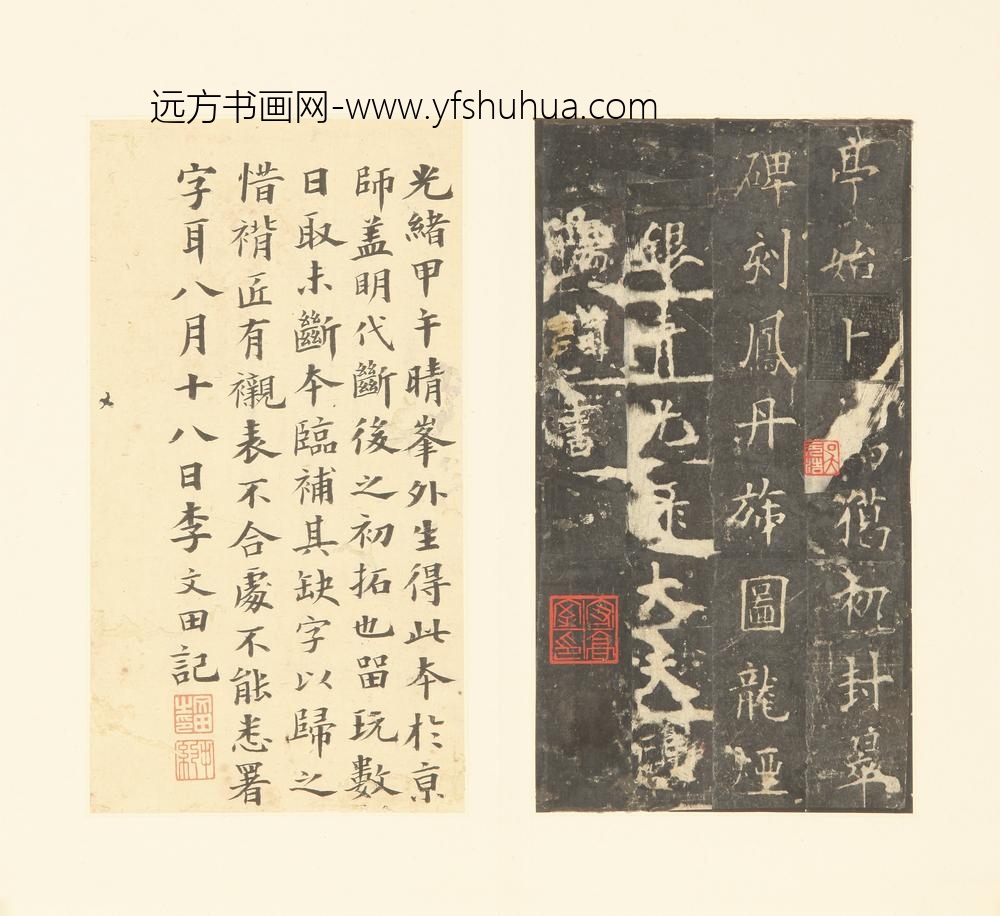 远方书画网-www.yfshuhua.com
亭始卜 舊初封墓
碑刻鳳丹旐圖龍煙
銀青光祿大夫
陽詢書
光緒甲午晴峯外生得此本於京
師蓋明代斷後之初拓也畱玩數
日取未斷本臨補其缺字以歸之
惜褙匠有襯表不合處不能悉署
字耳八月十八日李文田記